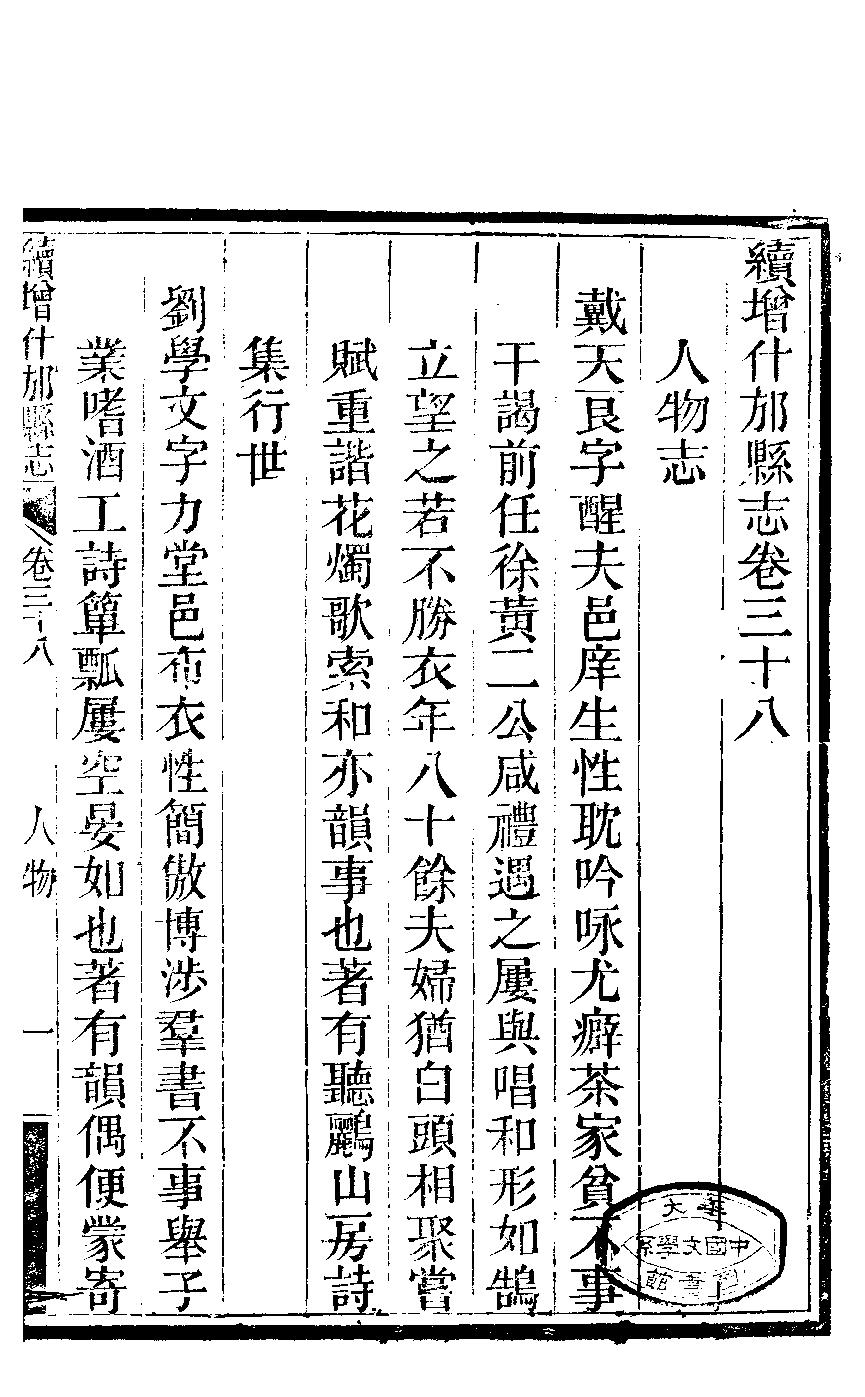 續增什邡縣志卷三十八
人物志
戴天民字醒夫邑庠生性耽吟咏尤癖茶家貧不事
干謁前任徐黃二公咸禮遇之屢與唱和形如鵠
立望之若不勝衣年八十餘夫婦猶白頭相聚嘗
賦重諧花燭歌索和亦韻事也著有聽鸝山房詩
集行世
劉學文字力堂邑布衣性簡傲博涉羣書不事舉子
業嗜酒工詩簞瓢屢空晏如也著有韻偶便蒙寄
續增什邡縣志
卷三十八
人物
一
中國文學系